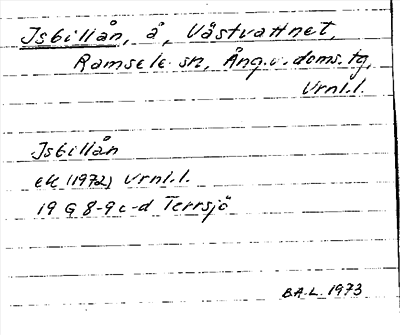 Isbillån, å, Västvattnet,
Ramsele sn, Ång.v. doms.tg,
Vrnl.l.
Isbillån
ek (1972) Vrnl.l.
19 G 8-9 c-d Terrsjö
B.A.L. 1973